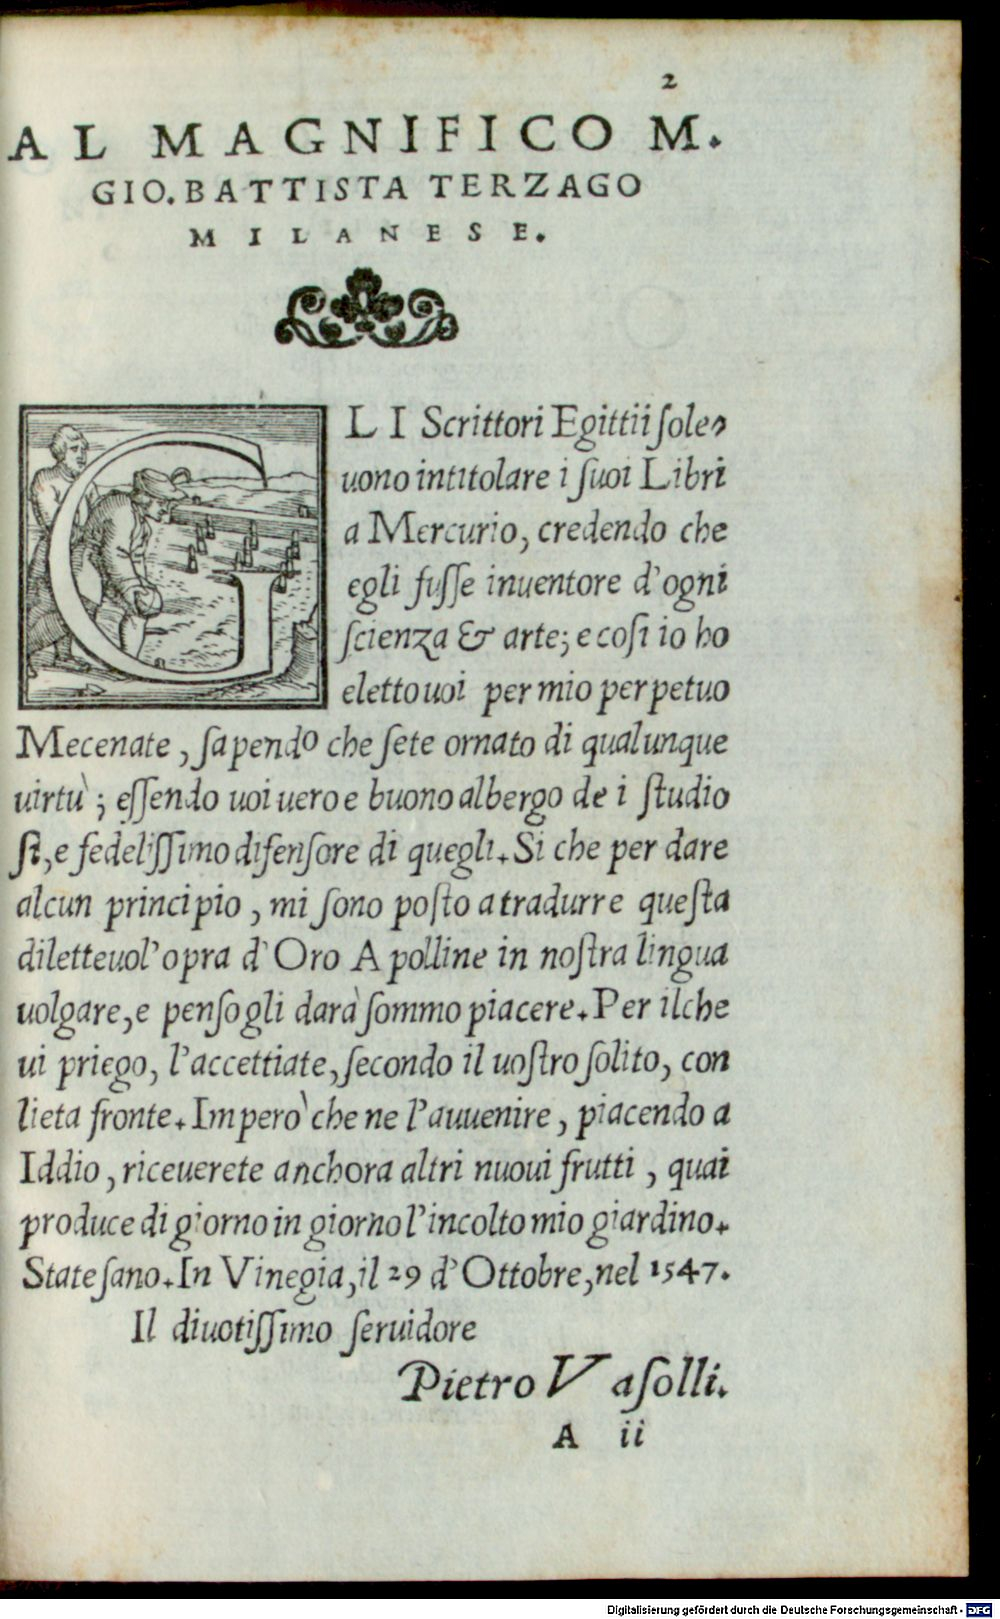 2
AL MAGNIFICO M.
GIO. BATTISTA TERZAGO
MILANESE.
GLI Scrittori Egittii ſole-
uono intitolare i ſuoi Libri
a Mercurio, credendo che
egli fuſſe inuentore d'ogni
ſcienza & arte; e coſi io ho
eletto uoi per mio perpetuo
Mecenate, ſapendo che ſete ornato di qualunque
uirtù; eſſendo uoi uero e buono albergo de i ſtudio
ſi, e fedeliſſimo difenſore di quegli. Si che per dare
alcun principio, mi ſono poſto a tradurre queſta
diletteuol' opra d'Oro Apolline in noſtra lingua
uolgare, e penſo gli darà ſommo piacere. Per ilche
ui priego, l'accettiate, ſecondo il uoſtro ſolito, con
lieta fronte. Imperò che ne l'auuenire, piacendo a
Iddio, riceuerete anchora altri nuoui frutti, quai
produce di giorno in giorno l'incolto mio giardino.
State ſano. In Vinegia, il 29 d'Ottobre, nel 1547.
Il diuotiſſimo ſeruidore
Pietro Vaſolli.
A ii
Digitalisierung gefördert durch die Deutsche Forschungsgemeinschaft - DFG